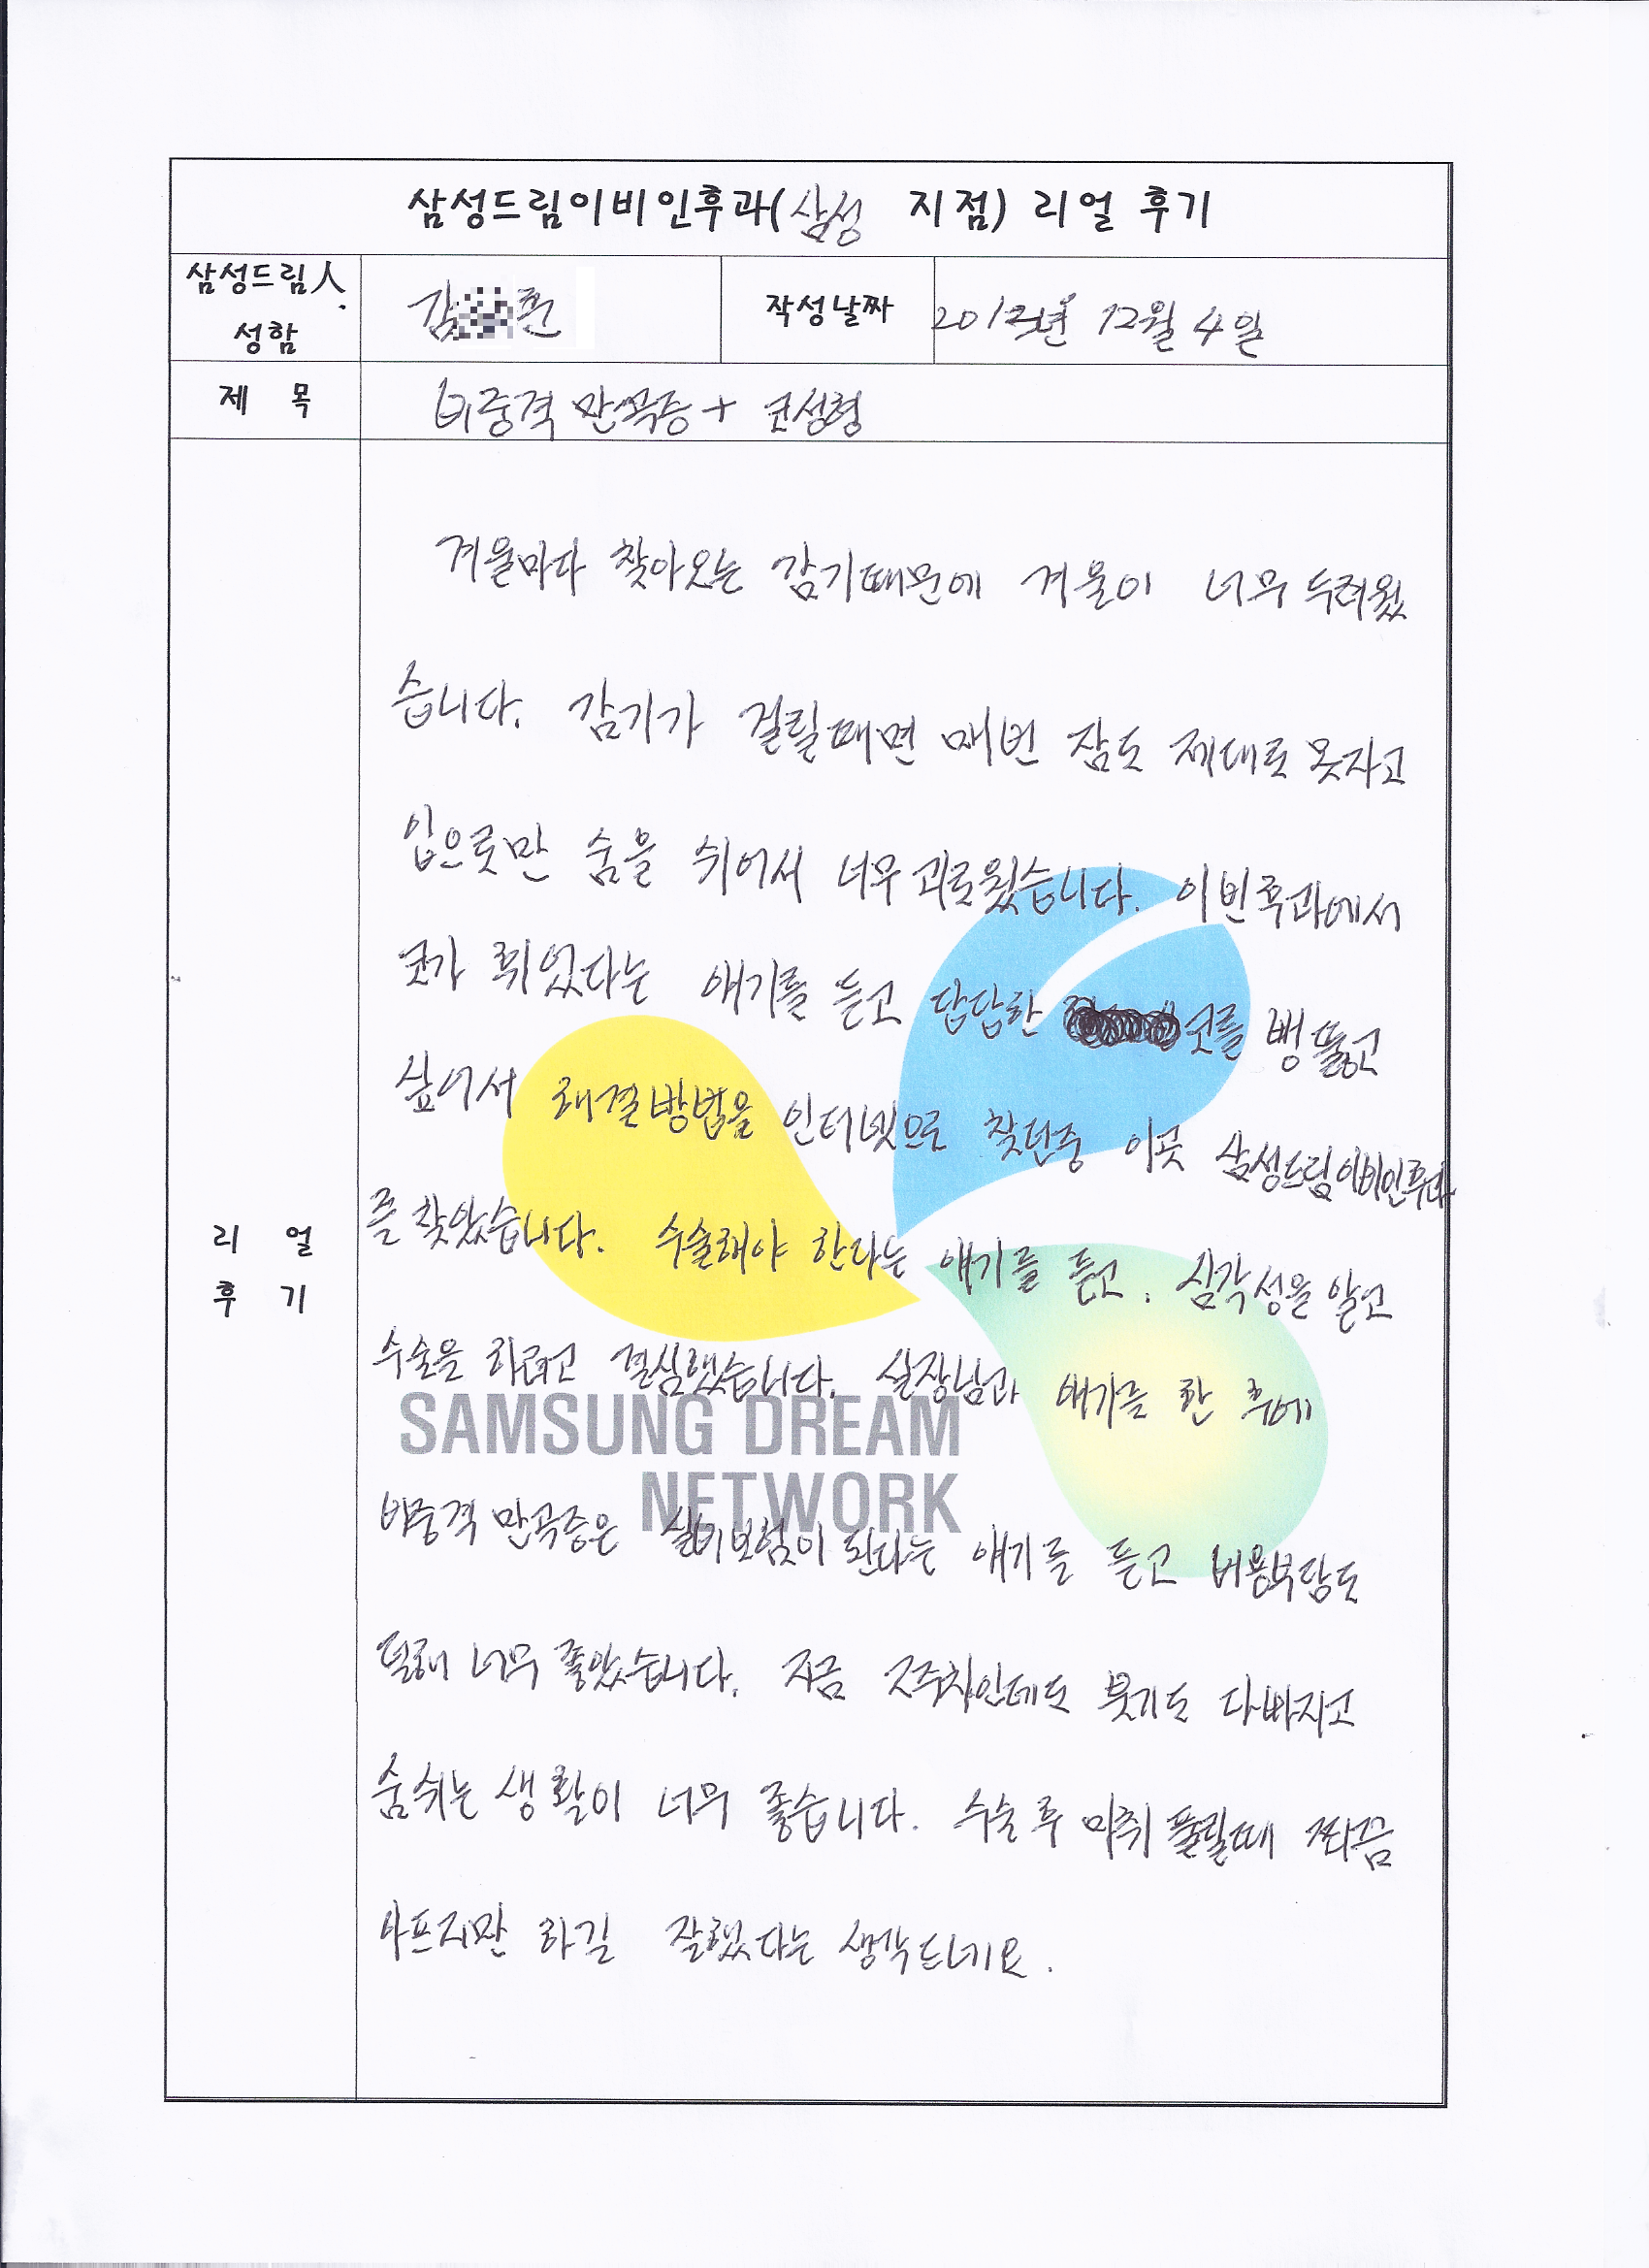 삼성드림이비인후과(삼성 지점) 리얼 후기
삼성드림人
성함
김 훈
작성날짜
2012년 12월 4일
제 목
비중격 만곡증 + 코성형
겨울마다 찾아오는 감기때문에 겨울이 너무 두려웠
습니다. 감기가 걸릴때면 매번 잠도 제대로 못자고
입으로만 숨을 쉬어서 너무 괴로웠습니다. 이빈후과에서
코가 휘었다는 얘기를 듣고 답답한 코를 뻥 뚫고
싶어서 해결방법을 인터넷으로 찾던중 이곳 삼성드림이비인후과
를 찾았습니다. 수술해야 한다는 얘기를 듣고. 심각성을 알고
수술을 하려고 결심했습니다. 실장님과 얘기를 한 후에
비중격 만곡증은 실비보험이 된다는 얘기를 듣고 비용부담도
덜해 너무 좋았습니다. 지금 2주차인데도 붓기도 다빠지고
숨쉬는 생활이 너무 좋습니다. 수술후 마취 풀릴때 쪼끔
아프지만 하길 잘했다는 생각드네요.
리 얼
후 기
SAMSUNG DREAM
NETWORK